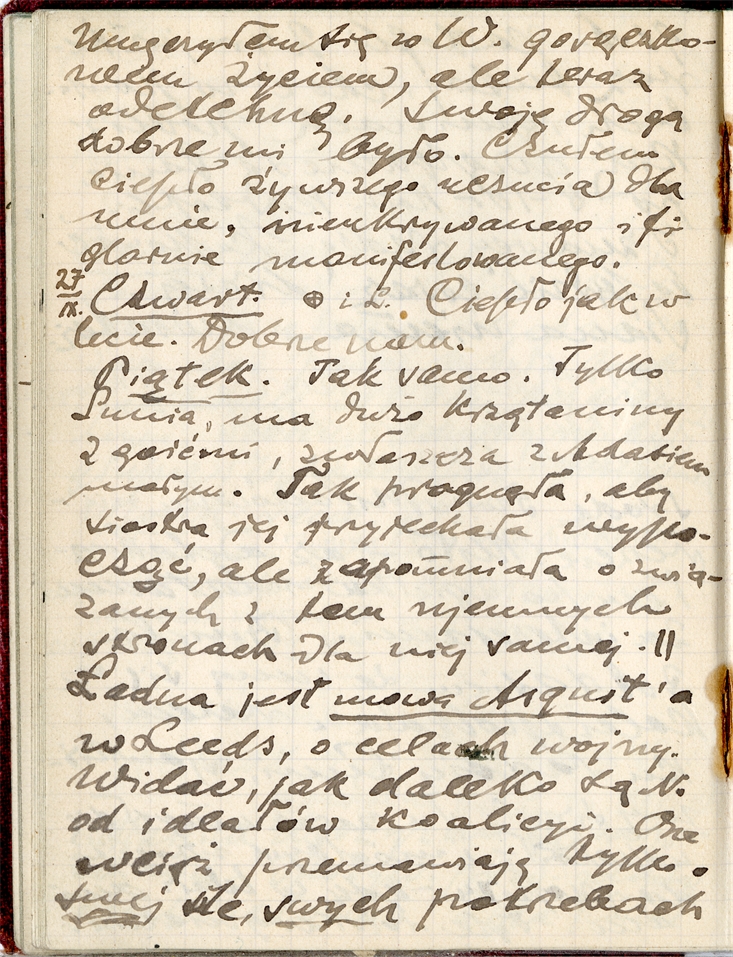 Zmęczyłem się w W. gorączko-
wem życiem, ale teraz
odetchnę. Swoją drogą
dobrze mi było. Czułem
ciepło żywszego uczucia dla
mnie, nieukrywanego i fi
glarnie manifestowanego.
27
IX. Czwart. ⊕ i L. Ciepło jak w
lecie. Dobrze nam.
Piątek. Tak samo. Tylko
Lunia, ma dużo krzątaniny
z gośćmi, zwłaszcza z Adasiem
małym. Tak pragnęła, aby
siostra jej przyjechała wypo-
cząć, ale zapomniała o zwią-
zanych z tem ujemnych
stronach dla niej samej. ||
Ładna jest mowa Asquit'a
w Leeds, o celach wojny.
Widać, jak daleko są N.
od ideałów koalicyi. One
wciąż przemawiają tylko o
swej sile, swych potrzebach